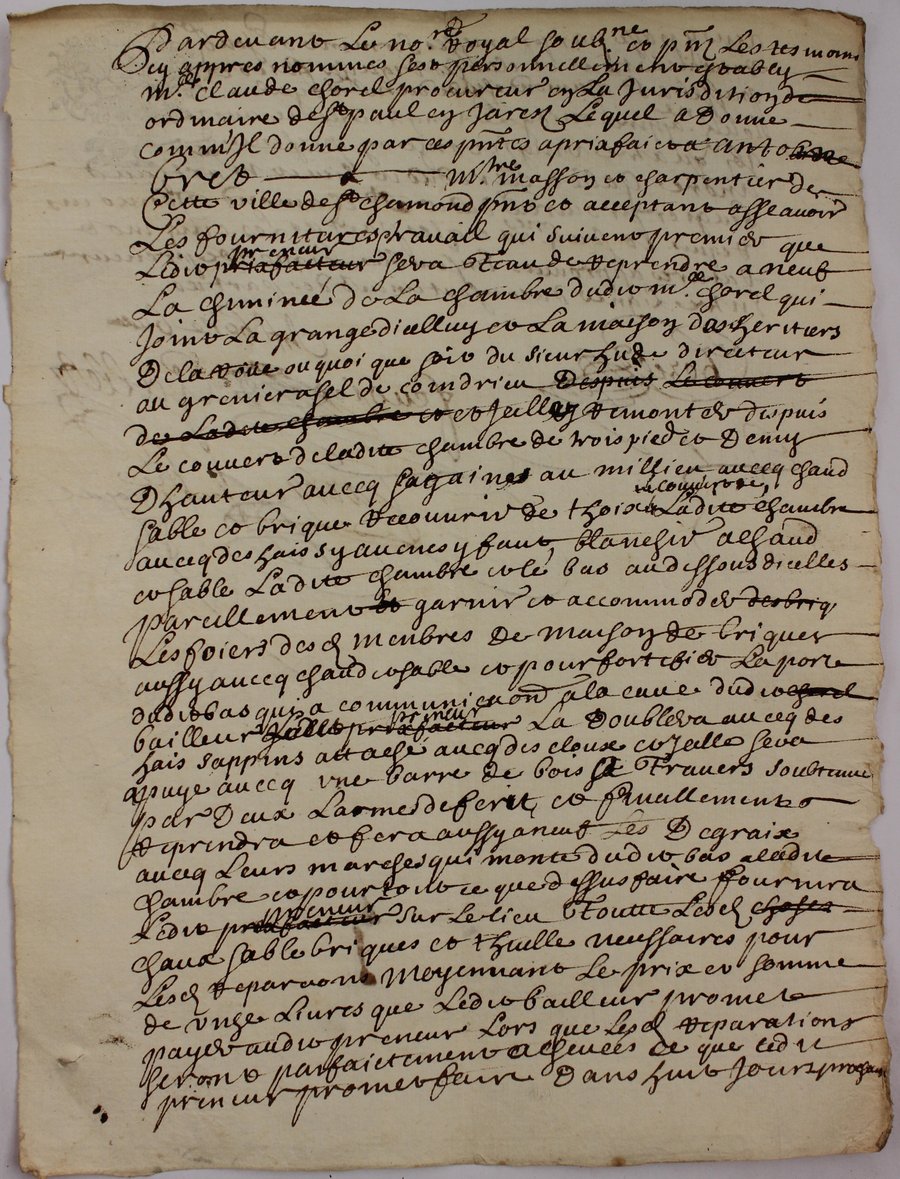 Pardevant Le no.re Royal soub.ne et pnt Les tesmoins
Cy appres nommes sest personnellement estably
m.e Claude chorel procureur en La Jurisdition
ordinaire de st paul en Jarest Lequel a Donne
comm'Jl donne par ces pntes a priafaict a
bret m.tre masson et charpentier de
Cette ville de st chamond pnt et acceptant assavoir
Les fournitures travail qui suivent premier que
Ledit preneur sera tenu de reprendre a neuf
La chiminee de La chambre dudit m.e chorel qui
Joint La grange dicelluy et La maison des heritiers
De la ou quoi que soit du sieur hude directeur
au grenier a sel de coindrieu Despuis Le couvert
de Ladite chambre et et Jcelle remonter despuis
Le couvert de ladite chambre de trois pied et Demy
Dhauteur avecq sa gaine au millieu avecq chaud
sable et brique recouvrir de thois Ladite chambre
avecq des hais sy aucnes y faut, blanchir a chaud
et sable Ladite chambre et le bas au dessoubs dicelles
pareillement garnir et accommoder des briq
Les foiers desd membres De maison de briques
aussy avecq chaud et sable et pour fortifier La porte
dudit bas qui a communicaon a la cave dudit chorel
bailleur Ledit preneur La Doublera avecq des
hais sappins attaché avecq des cloux et Jcelle sera
apuyé avecq vne barre de bois a travers soubtenue
par Deux Larmes de fert, et finallement
reprendra et fera aussy a neuf Les Degraix
avecq Leurs marches qui monte dudit bas a ladite
chambre et pour tout ce que dessus faire fournira
Ledit preneur sur Le lieu Toutte Lesd choses
chaux sable briques et thuille nessaires pour
Lesd reparaons Moyennant Le prix et somme
de vnze Livres que Ledit bailleur promet
payer audit preneur Lors que Lesd reparations
seront parfaictement achevées ce que ledit
preneur promet faire Dans huit Jours prochain